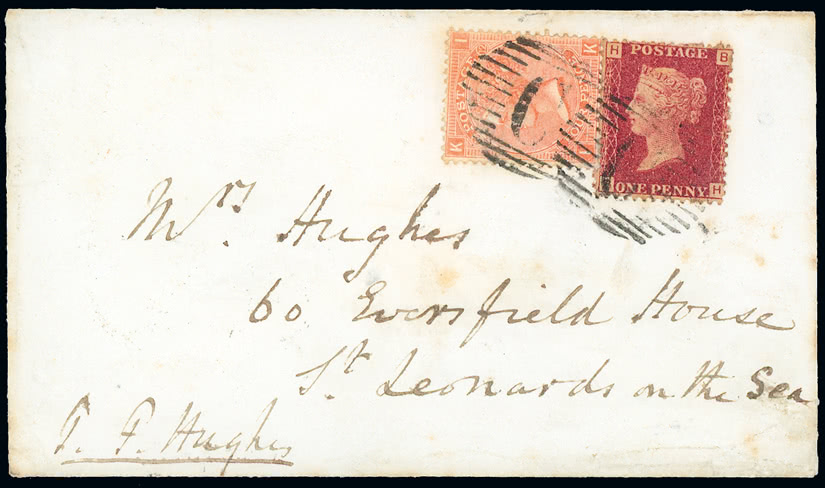 K I
POSTAGE
K
H B
POSTAGE
ONE PENNY H
Mrs Hughes
60 Eversfield House
St Leonards on the Sea
T. F. Hughes